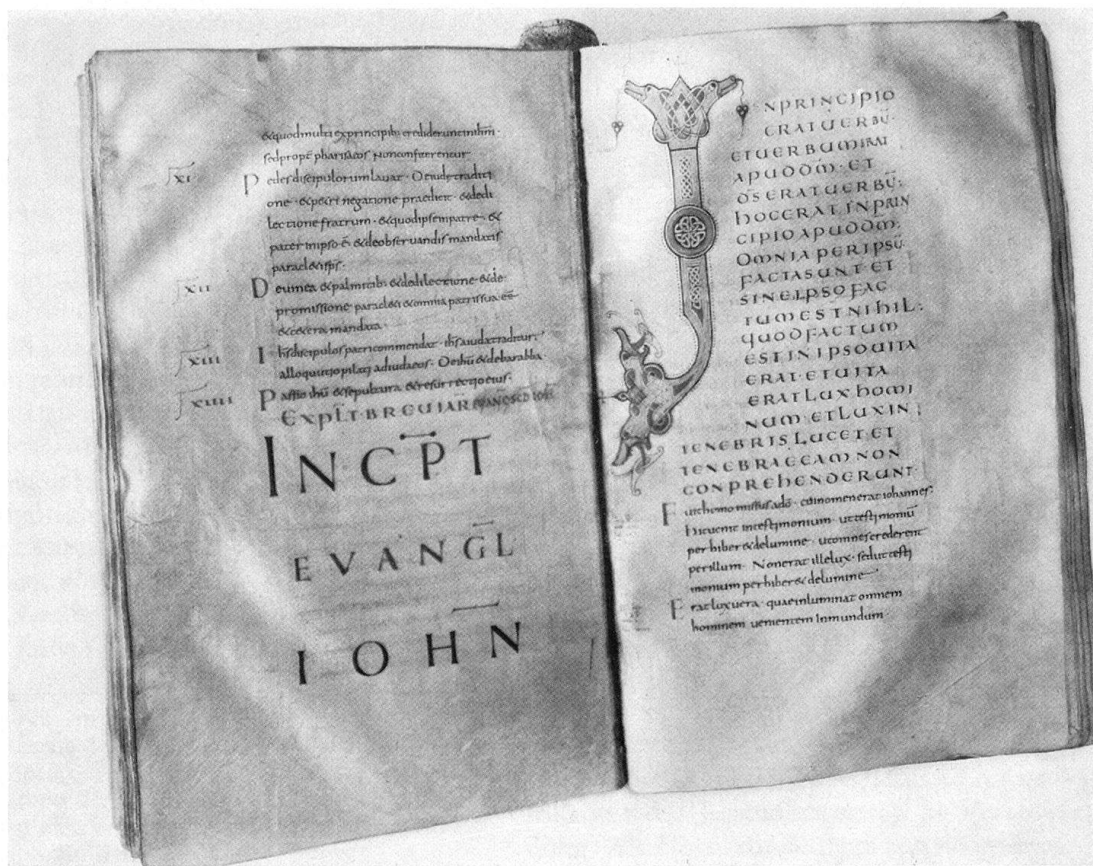 &quodmulti exprincipib; crediderunt inihm̄ ·
sedpropt̄ pharisaeos Nonconfiterentur
xi · Pedes discipulorum lauat · Deiudae traditi
one · &petri negatione praedicit · &dedi
lectione fratrum · &quodipse inpatre · &
pater inipso ē · &deobseruandis mandatis
paracl&isp̄s ·
xii Deuinea &palmitib; &dedilectione · &de
promissione paracl&i &omnia patris sua eē
&c&era mandata ·
xiii Ihs̄ discipulos patri commendat · ihs̄ aiuda traditur
alloquitur pilatus adiudaeos · Deihū &debarabba
xiiii Passio ihū &sepultura &resurrectio eius ·
EXPLĪT · BREUIAR̄
INCP̄T
EVANGL̄
IOHN̄
INPRINCIPIO
ERATUERBŪ ·
ETUERBUMERAT
APUDDM̄ · ET
DS̄ERATUERBŪ :
HOCERATINPRIN
CIPIOAPUDDM̄ :
OMNIAPERIPSŪ
FACTASUNT · ET
SINEIPSOFAC
TUMESTNIHIL :
QUODFACTUM
ESTINIPSOUITA
ERAT · ETUITA
ERATLUXHOMI
NUM · ETLUXIN
TENEBRISLUCET · ET
TENEBRAEEAMNON
CONPREHENDERUNT ·
Fuit homo missus adō · cuinomen erat iohannes :
hicuenit intestimonium · uttesti moniū
perhiber& delumine · utomnes crederent
perillum · Nonerat ille lux · sed uttesti
monium perhiber& delumine ·
Erat lux uera · quae inluminat omnem
hominem uenientem inmundum ·